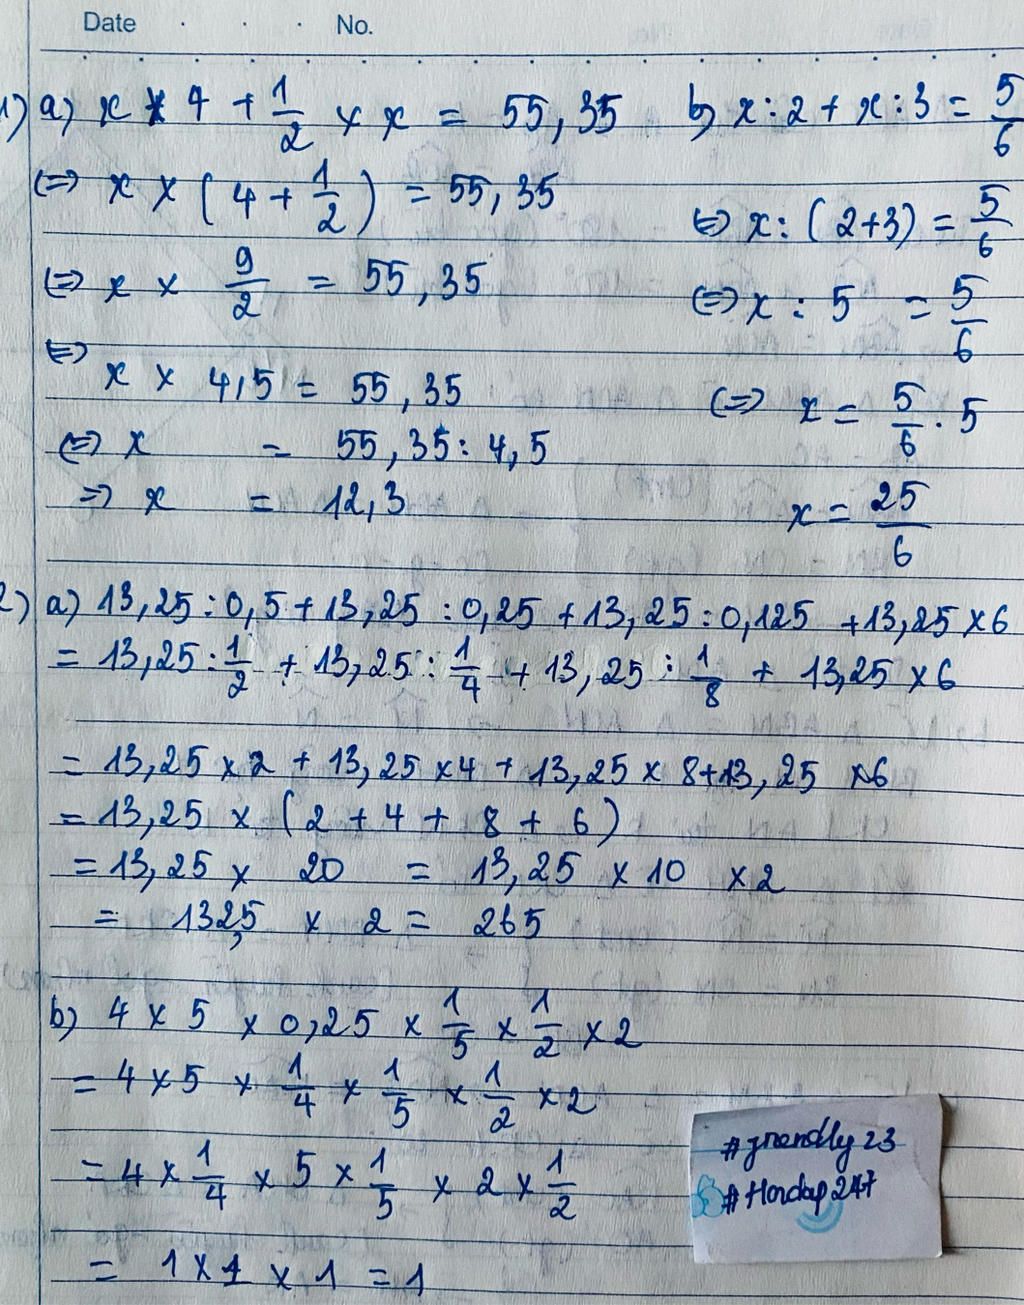 Date No.
1) a) x × 4 + 1/2 × x = 55,35
⇔ x × (4 + 1/2) = 55,35
⇔ x × 9/2 = 55,35
⇔ x × 4,5 = 55,35
⇔ x = 55,35 : 4,5
⇒ x = 12,3
b) x : 2 + x : 3 = 5/6
⇔ x : (2+3) = 5/6
⇔ x : 5 = 5/6
⇔ x = 5/6 . 5
x = 25/6
2) a) 13,25 : 0,5 + 13,25 : 0,25 + 13,25 : 0,125 + 13,25 × 6
= 13,25 : 1/2 + 13,25 : 1/4 + 13,25 : 1/8 + 13,25 × 6
= 13,25 × 2 + 13,25 × 4 + 13,25 × 8 + 13,25 × 6
= 13,25 × (2 + 4 + 8 + 6)
= 13,25 × 20 = 13,25 × 10 × 2
= 132,5 × 2 = 265
b) 4 × 5 × 0,25 × 1/5 × 1/2 × 2
= 4 × 5 × 1/4 × 1/5 × 1/2 × 2
= 4 × 1/4 × 5 × 1/5 × 2 × 1/2
= 1 × 1 × 1 = 1
#friendly 23
# Hoidap 247